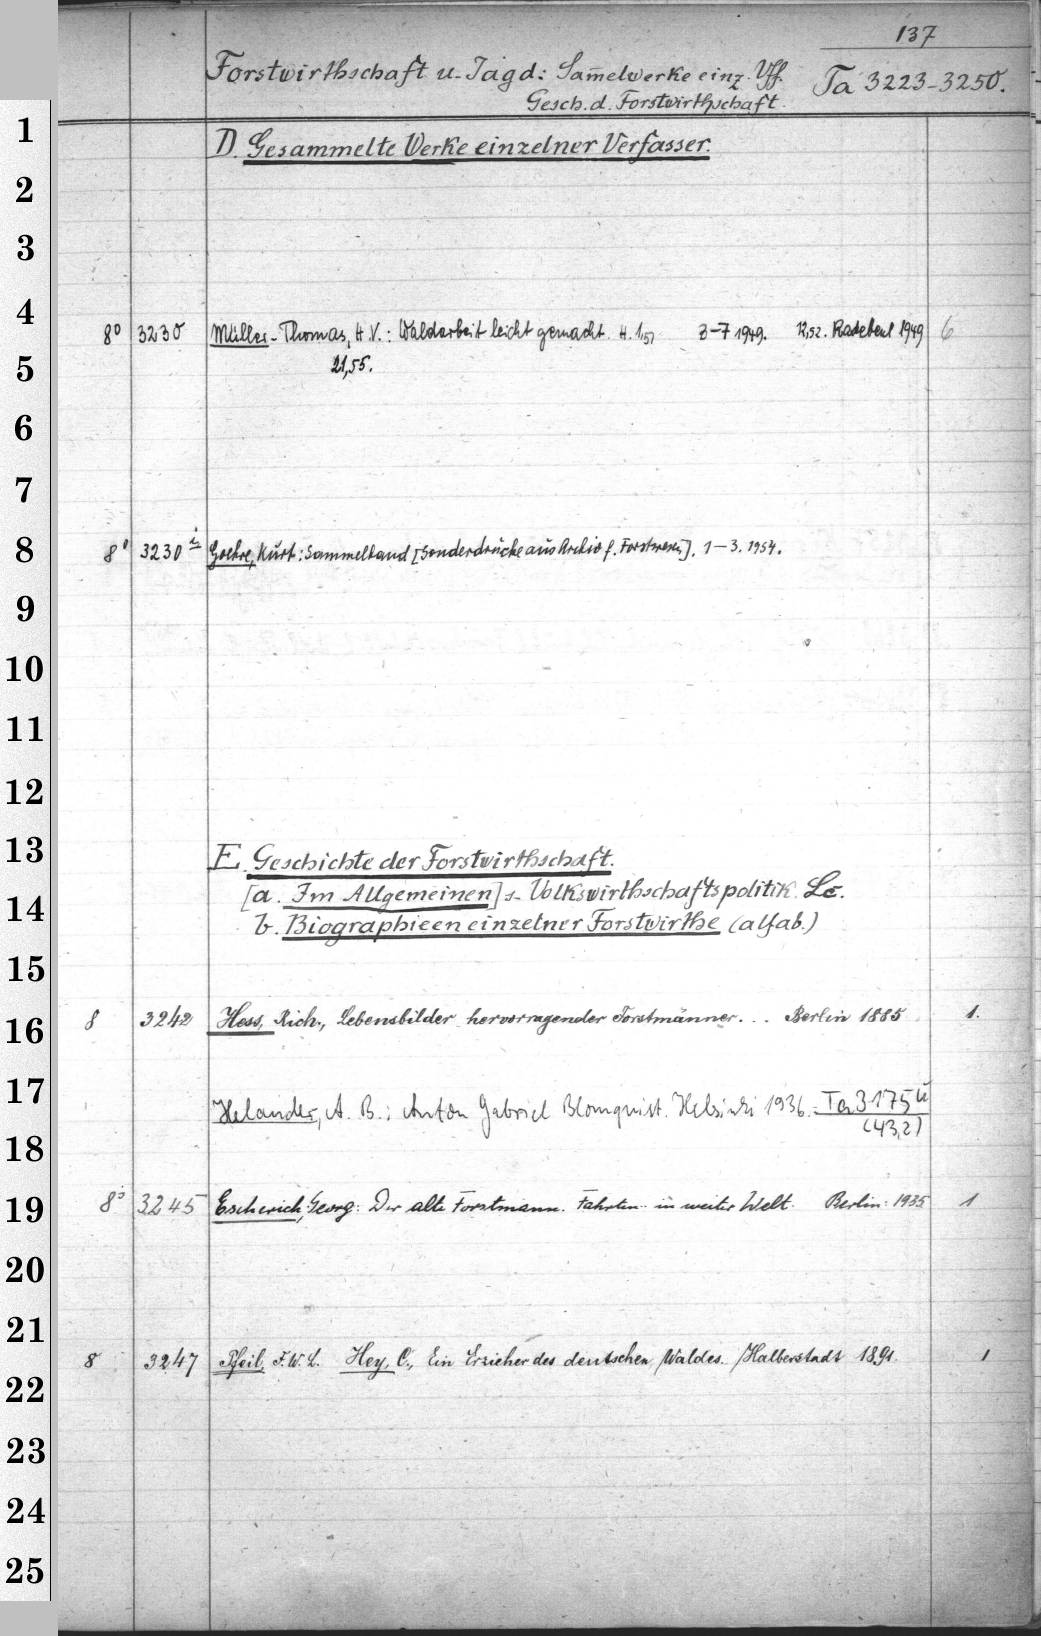 137
Forstwirthschaft u. Jagd: Sam̅elwerke einz. Vff. Ta 3223-3250.
Gesch. d. Forstwirthschaft.
1 D. Gesammelte Werke einzelner Verfasser.
2
3
4 8° 3230 Müller-Thomas, H. V.: Waldarbeit leicht gemacht. H. 3-7 1949. 12,52. Radebeul 1949 6
5 21,55.
6
7
8 8° 3230 i Goehre, Kurt: Sammelband [Sonderdrücke aus Archiv f. Forstwesen]. 1-3. 1954.
9
10
11
12
13 E. Geschichte der Forstwirthschaft.
14 [a. Im Allgemeinen] s. Volkswirthschaftspolitik. Lc.
b. Biographieen einzelner Forstwirthe (alfab.)
15
16 8 3242 Hess, Rich., Lebensbilder hervorragender Forstmänner... Berlin 1885 1.
17 Helander, A. B.: Anton Gabriel Blomquist. Helsinki 1936. = Ta 3175 u
18 (43,2)
19 8° 3245 Escherich, Georg: Der alte Forstmann. Fahrten in weiter Welt. Berlin 1935 1
20
21 8 3247 Pfeil, F. W. L. Hey, C., Ein Erzieher des deutschen Waldes. Halberstadt 1891. 1
22
23
24
25